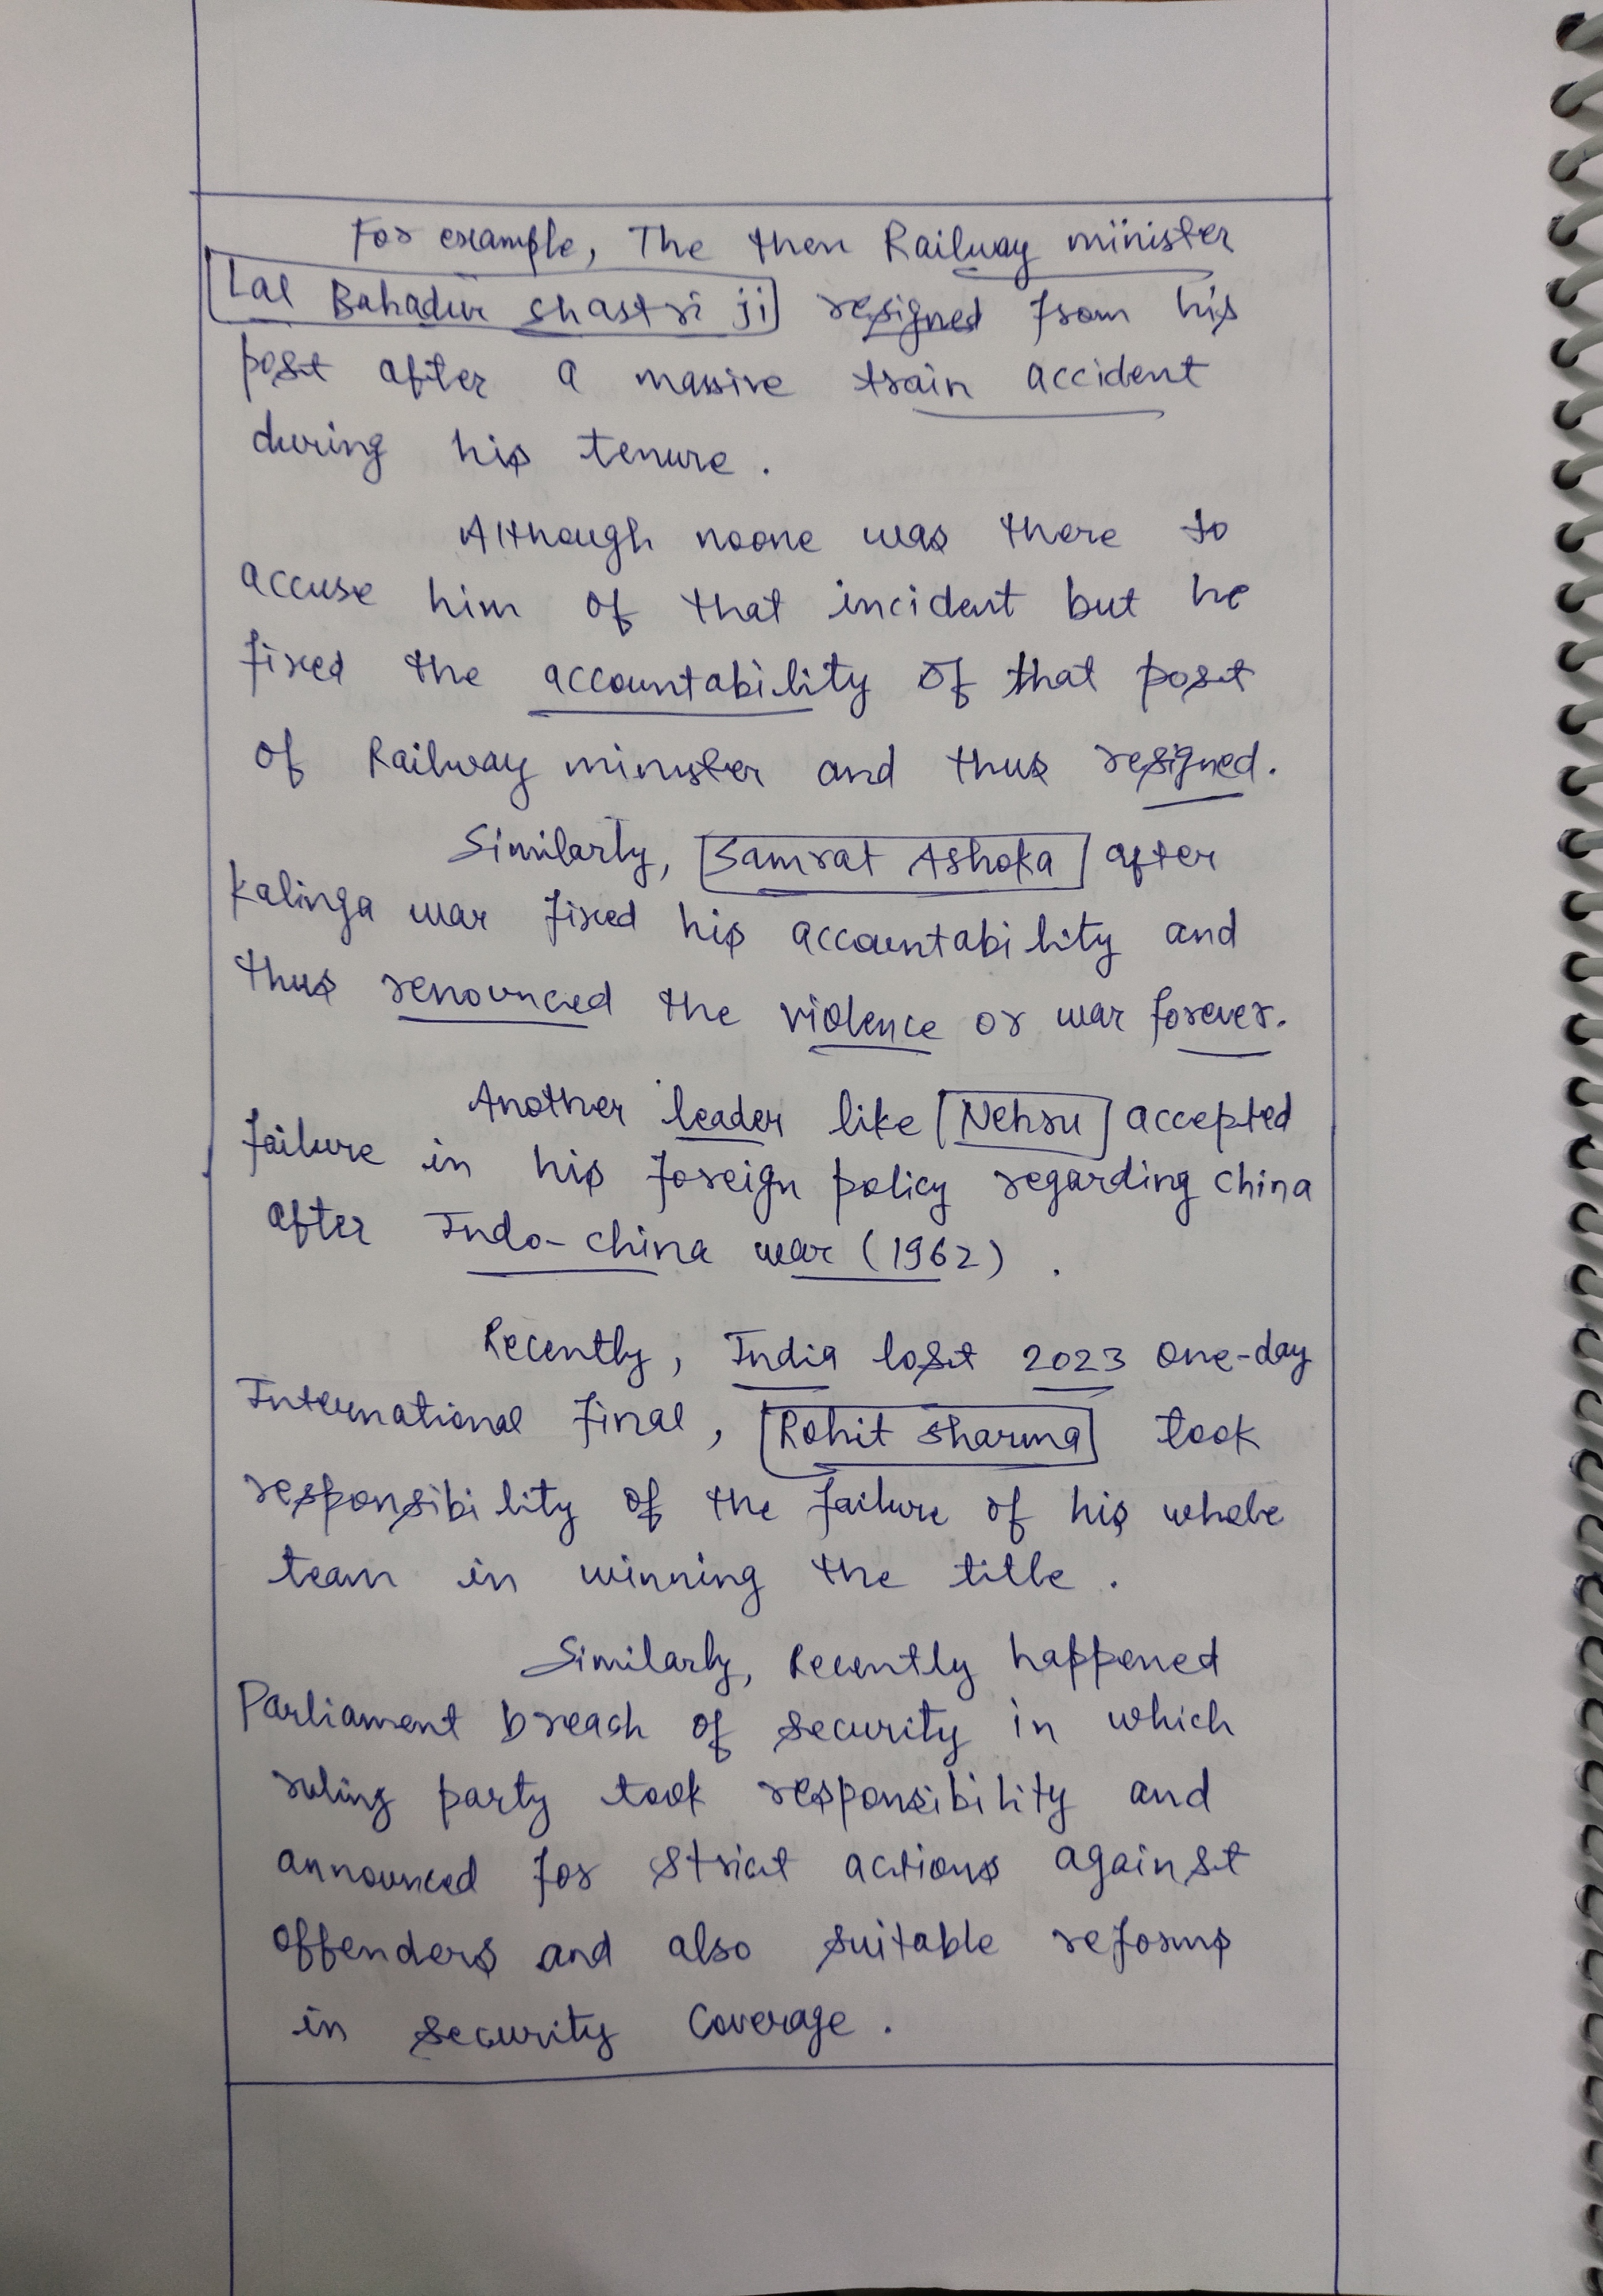 For example, The then Railway minister
Lal Bahadur Shastri ji resigned from his
post after a massive train accident
during his tenure.
Although noone was there to
accuse him of that incident but he
fixed the accountability of that post
of Railway minister and thus resigned.
Similarly, Samrat Ashoka after
Kalinga war fixed his accountability and
thus renounced the violence or war forever.
Another leader like Nehru accepted
failure in his foreign policy regarding China
after Indo-China war (1962).
Recently, India lost 2023 one-day
International final, Rohit Sharma took
responsibility of the failure of his whole
team in winning the title.
Similarly, Recently happened
Parliament breach of security in which
ruling party took responsibility and
announced for strict actions against
offenders and also suitable reforms
in security coverage.